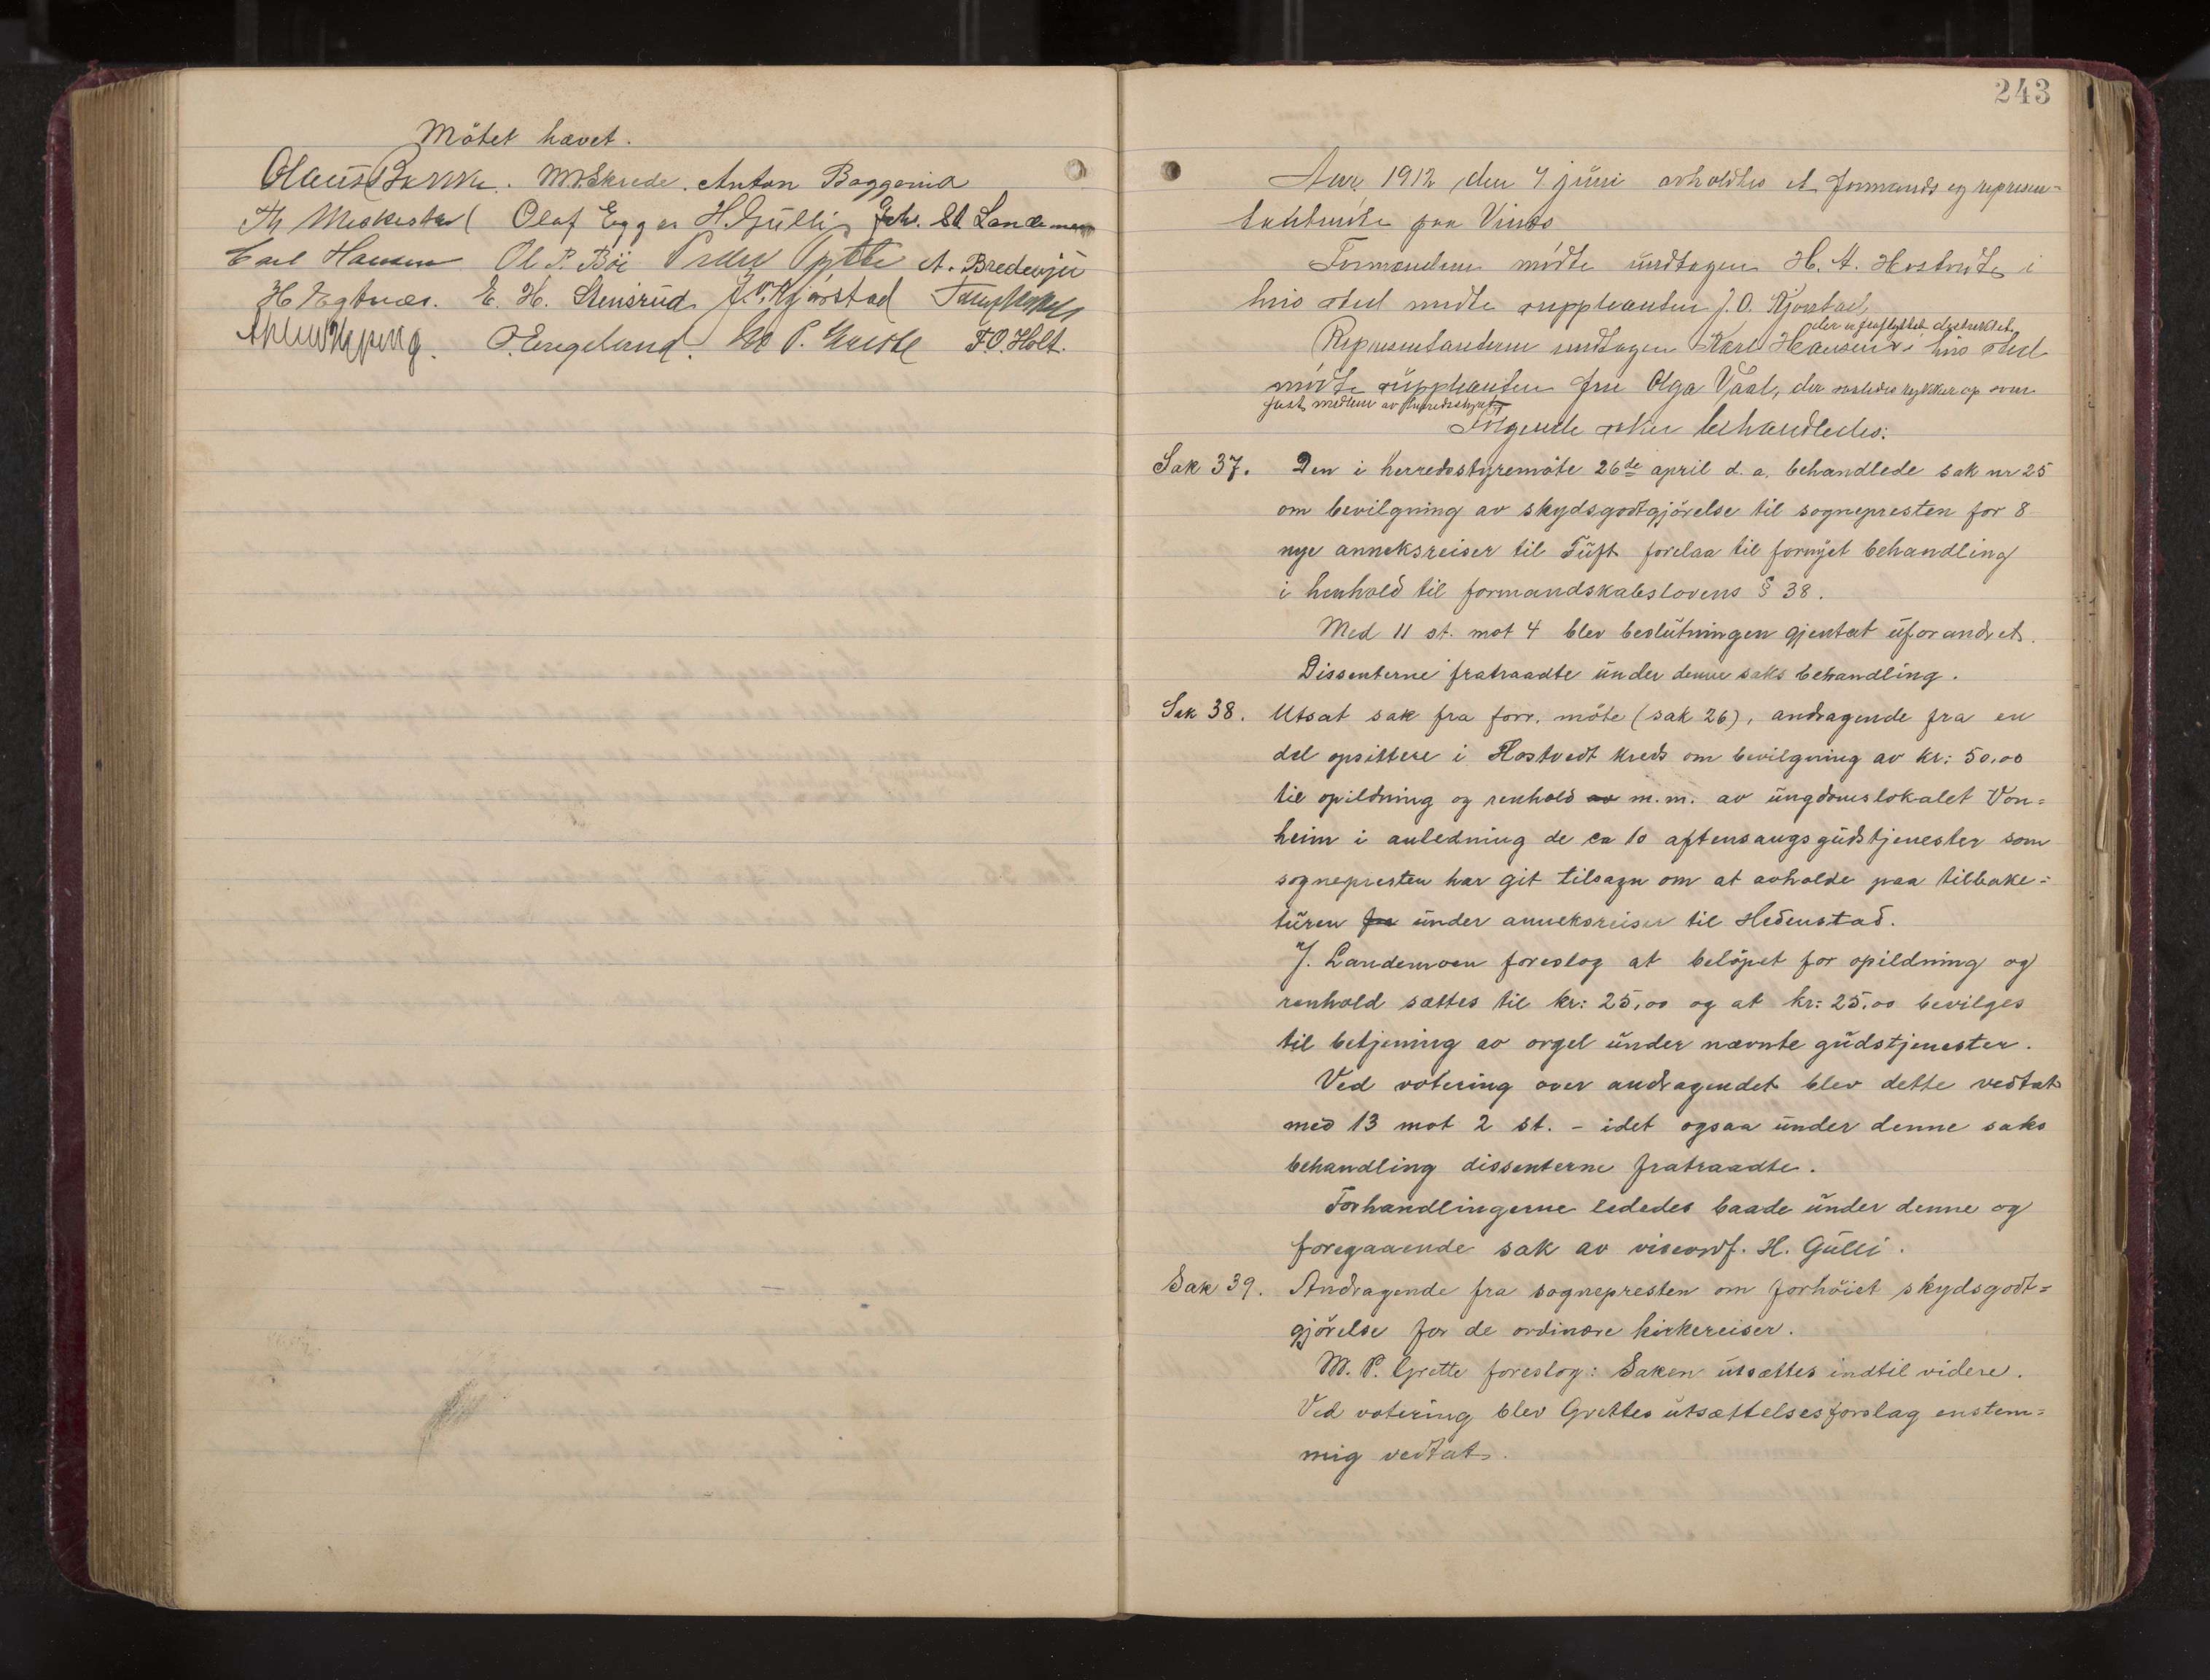 Mötet hævet.
Olaus Bakke. M. Skrede. Anton Baggerud
Th Meskestad Olaf Egger H. Gulli Joh. St Landemoen
Carl Hansen Ol P. Böe Peder A. Bredevju
H. E. H. Stensrud J. O. Kjörstad
O. Engeland. M P. Grette F. O. Holt.
243
Aar 1912 den 7 juni avholdtes et formands og represen-
tantmöte paa Vinds
Formændene mödte undtagen H. A. Hostvedt, i
hvis sted mödte suppleanten J. O. Kjörstad,
der er fraflyttet distriktet,
Representanterne undtagen Karl Hansen i hvis sted
mödte suppleanten fru Olga Vaal, der saaledes rykker op som
fast medlem av herredsstyret
Fölgende saker behandledes:
Sak 37. Den i herredsstyremöte 26de april d. a. behandlede sak nr 25
om bevilgning av skydsgodtgjörelse til sognepresten for 8
nye anneksreiser til Tuft forelaa til fornyet behandling
i henhold til formandskabslovens § 38.
Med 11 st. mot 4 blev beslutningen gjentat uforandret.
Dissenterne fratraadte under denne saks behandling.
Sak 38. Utsat sak fra forr. möte (sak 26), andragende fra en
del opsittere i Hostvedt kreds om bevilgning av kr: 50,00
til opildning og renhold av m.m. av ungdomslokalet Von=
heim i anledning de ca 10 aftensangsgudstjenester som
sognepresten har git tilsagn om at avholde paa tilbake=
turen fra under anneksreiser til Hedenstad.
J. Landemoen foreslog at belöpet for opildning og
renhold sættes til kr: 25,00 og at kr: 25,00 bevilges
til betjening av orgel under nævnte gudstjenester.
Ved votering over andragendet blev dette vedtat
med 13 mot 2 st. - idet ogsaa under denne saks
behandling dissenterne fratraadte.
Forhandlingerne lededes baade under denne og
foregaaende sak av viseordf. H. Gulli.
Sak 39. Andragende fra sognepresten om forhöiet skydsgodt=
gjörelse for de ordinære kirkereiser.
M. P. Grette foreslog: Saken utsættes indtil videre.
Ved votering blev Grettes utsættelsesforslag enstem=
mig vedtat.